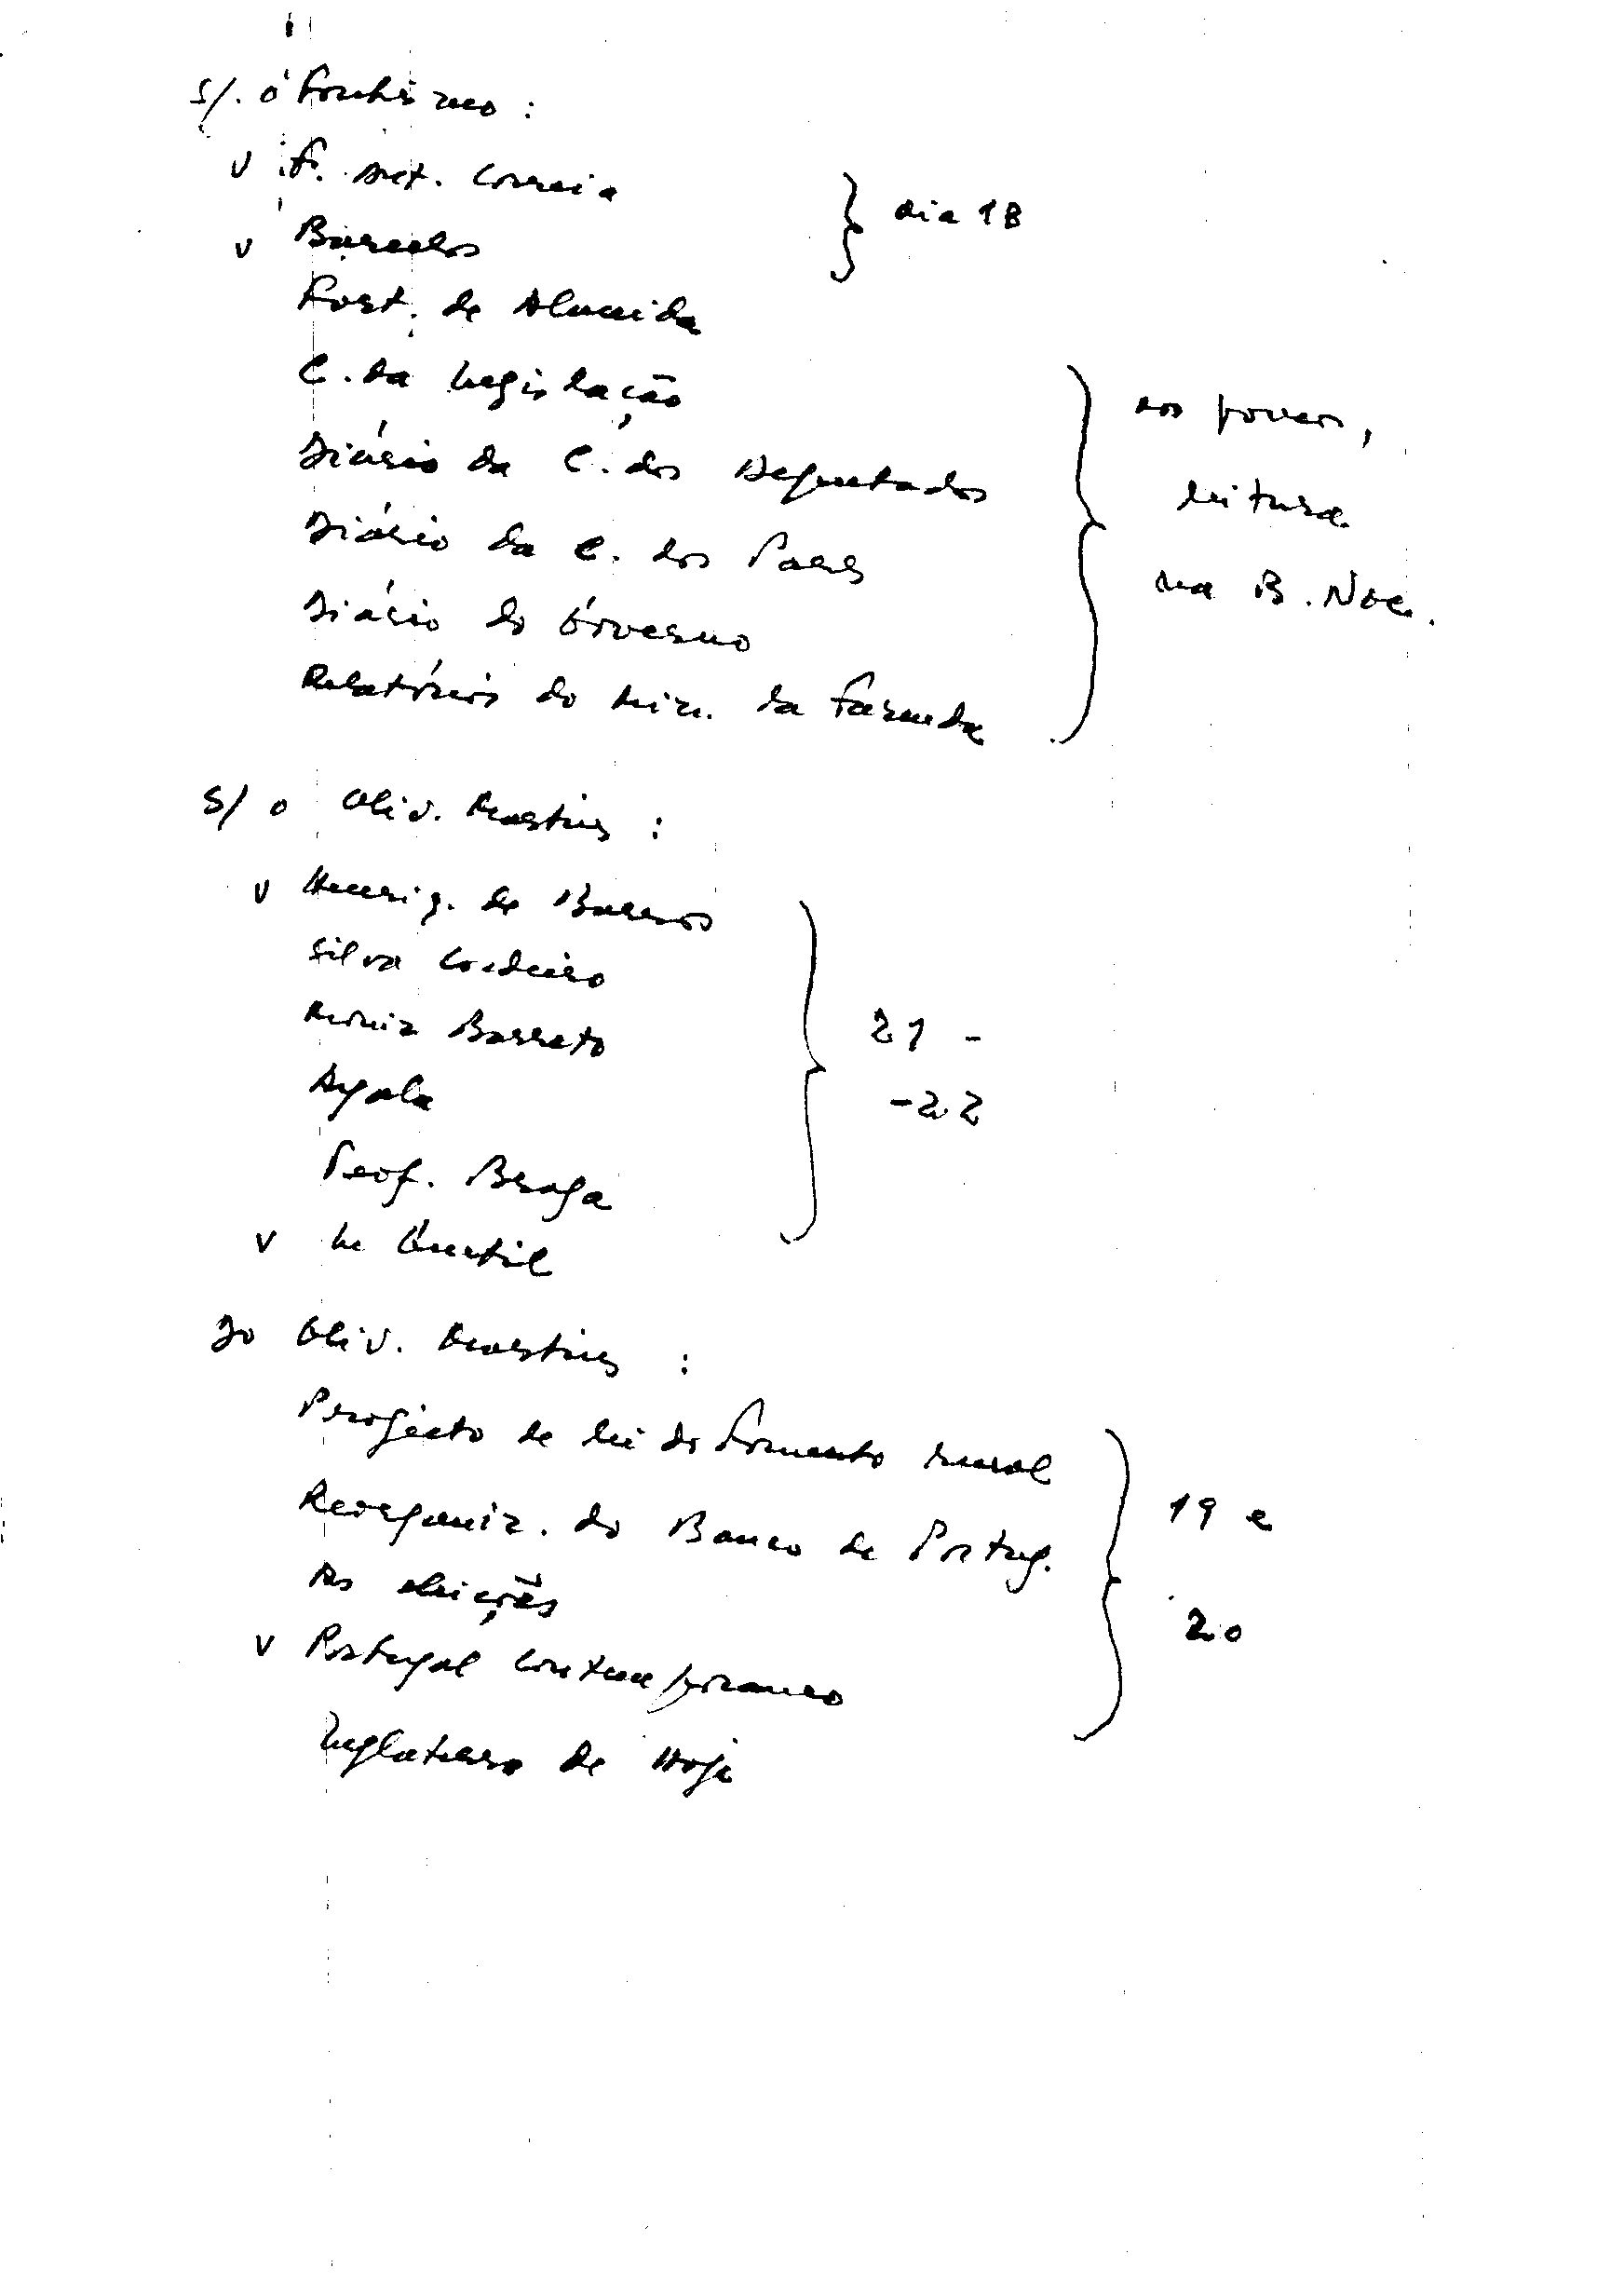 S/. o Fontismo :
v F. Ant. Correia
v Barcelos
dia 18
Fort. de Almeida
C. da Legislação
Diário da C. dos Deputados
Diário da C. dos Pares
Diário do Governo
Relatórios do Min. da Fazenda
aos poucos,
leitura
na B. Nac.
S/ o Oliv. Martins :
v Henriq. de Barros
Silva Cordeiro
Moniz Barreto
Ayala
Teof. Braga
v
21 -
- 22
Do Oliv. Martins :
Projecto de lei do Fomento rural
Reorganiz. do Banco de Portug.
As eleições
v Portugal Contemporaneo
Inglaterra de Hoje
19 e
20